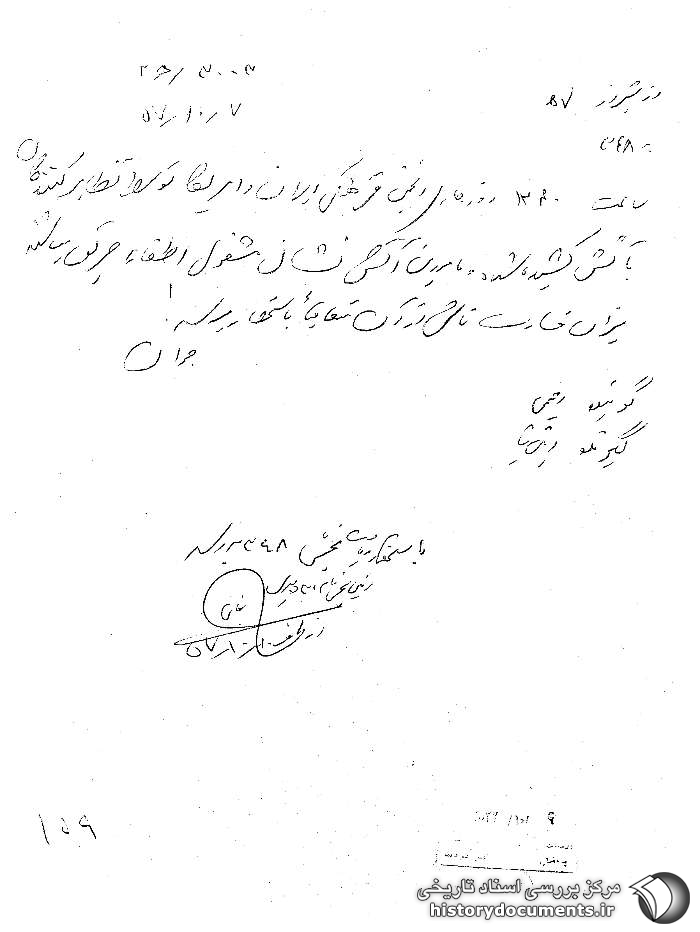 ۲۶/۳۰۰۳
۵۷/۱۰/۷
از شیراز ۵۷
به ۳۴۸
ساعت ۱۳۶۰ روز جاری انجمن فرهنگی ایران و امریکا توسط تظاهر کنندگان
به آتش کشیده شد. مامورین آتش نشانی مشغول اطفاء حریق میباشند
میزان خسارت ناشی از آن متعاقباً باستحضار میرسد.
جوان
گوینده رحیمی
گیرنده
باستحضار ریاست بخش ۳۴۸ برسد
از طرف ۵۷/۱۰/۱۰
۱۵۹
مرکز بررسی اسناد تاریخی
historydocuments.ir